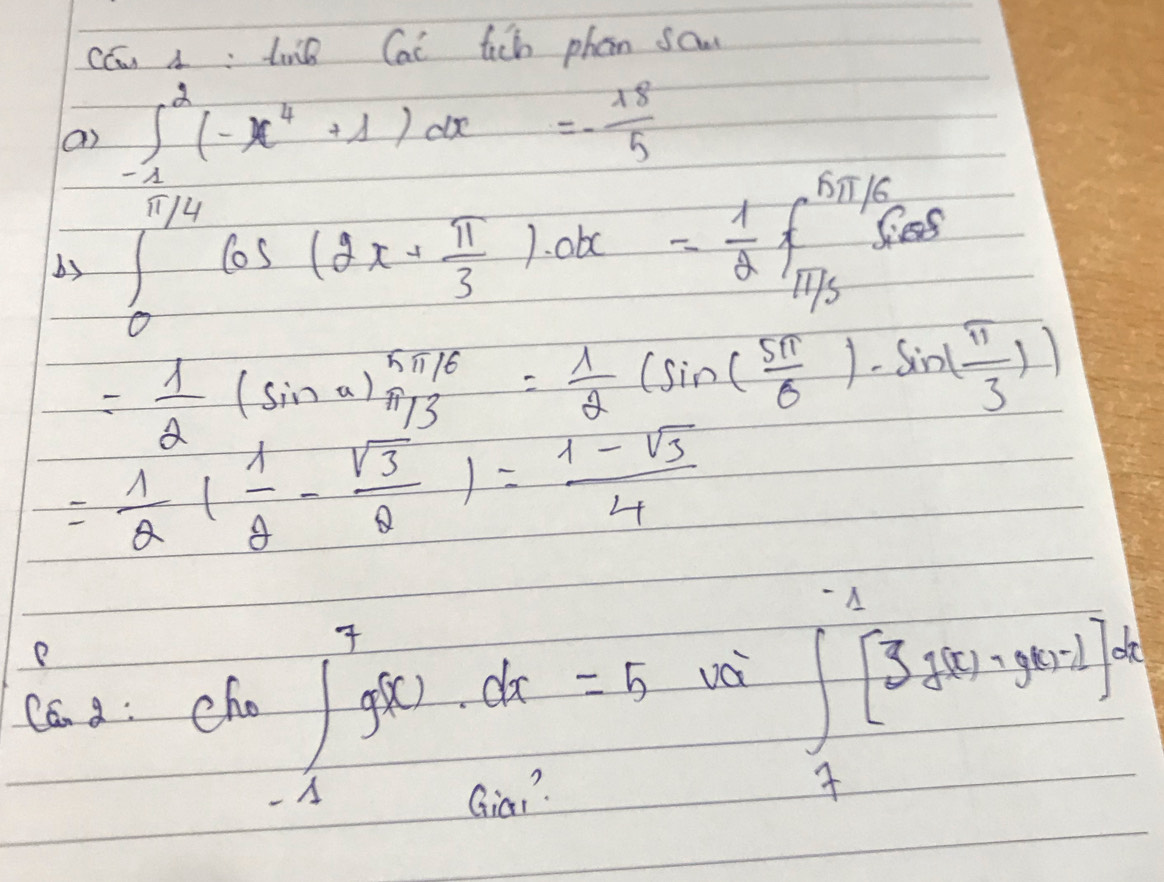 Câu 1 : tính Các tích phân sau
a) ∫_{-1}^{2} (-x⁴ + 1) dx = -18/5
b) ∫_{0}^{π/4} Cos (2x + π/3).dx = 1/2 ∫_{π/3}^{5π/6}
= 1/2 (sin u)_{π/3}^{5π/6} = 1/2 (sin(5π/6) - sin(π/3))
= 1/2 (1/2 - √3/2) = (1 - √3)/4
Câu 2 : cho ∫_{-1}^{7} g(x) . dx = 5 và ∫_{7}^{-1} [3 dx
Giải: